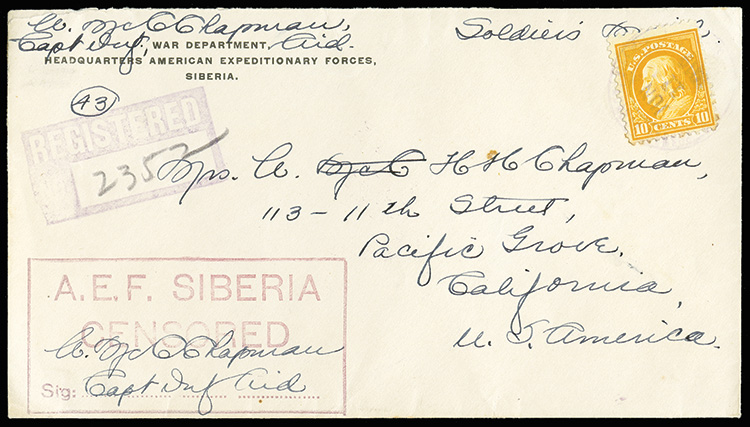 A. McC Chapman,
Capt Inf, Aid-
WAR DEPARTMENT,
HEADQUARTERS AMERICAN EXPEDITIONARY FORCES,
SIBERIA.
Soldier's
U.S. POSTAGE
10 CENTS 10
43
REGISTERED
2352
Mrs. A. McC H H Chapman,
113-11th Street,
Pacific Grove.
California,
U. S. America.
A.E.F. SIBERIA
CENSORED
A. McC Chapman
Sig: Capt Inf Aid